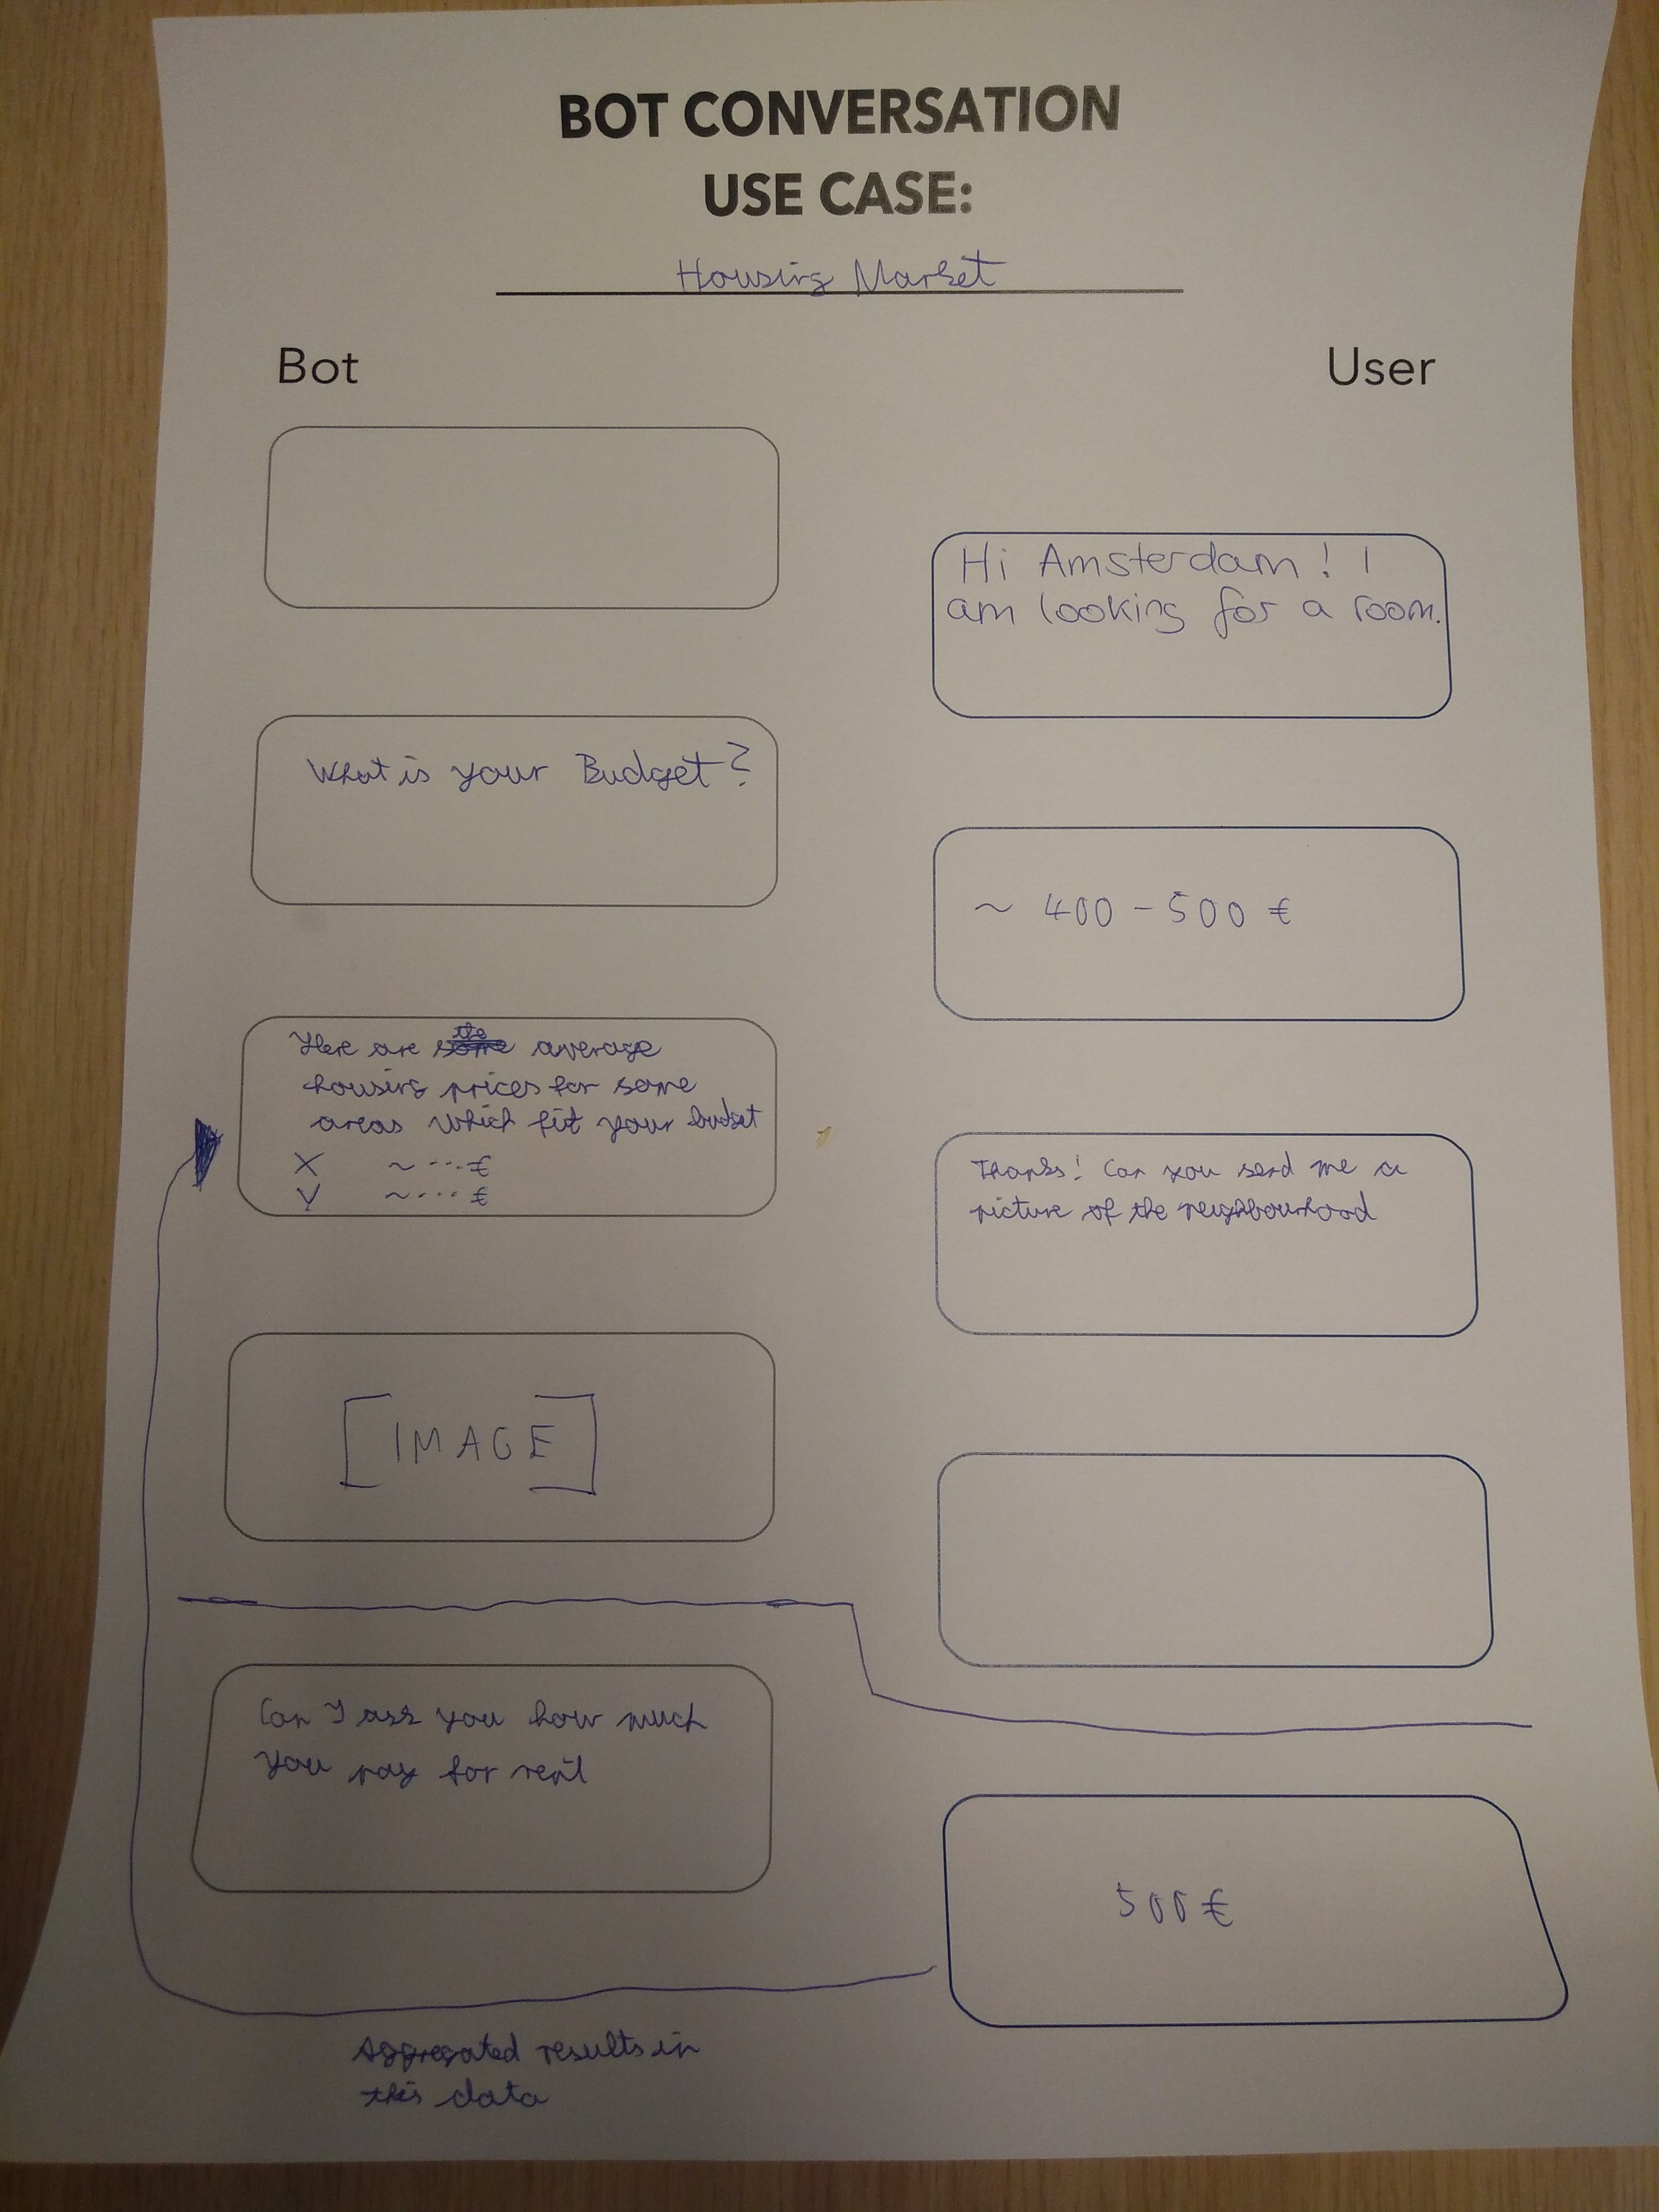 BOT CONVERSATION
USE CASE:
Housing Market
Bot
User
Hi Amsterdam! I
am looking for a room.
What is your Budget?
~ 400 - 500 €
Here are the average
housing prices for some
areas which fit your budget
X ~ ...€
Y ~ ... €
Thanks! Can you send me a
picture of the neighbourhood
[IMAGE]
Can I ask you how much
you pay for rent
500€
Aggregated results in
this data